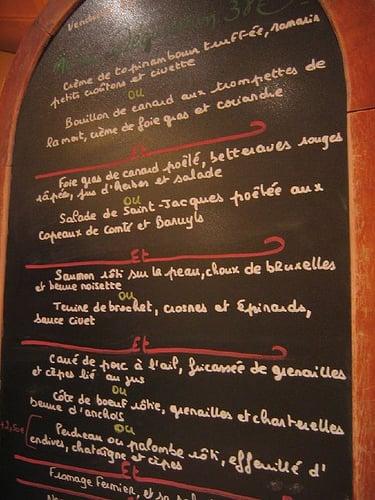 Vendredi
38€
Crème de topinambour truffée, romarin
petits croûtons et civette
ou
Bouillon de canard aux trompettes de
la mort, crème de foie gras et coriandre
Et
Foie gras de canard poêlé, betteraves rouges
râpée, jus d'herbes et salade
ou
Salade de Saint-Jacques poêlée aux
copeaux de comté et Banyuls
Et
Saumon rôti sur la peau, choux de bruxelles
et beurre noisette
ou
Terrine de brochet, crosnes et épinards,
sauce civet
Et
Carré de porc à l'ail, fricassée de grenailles
et cèpes lié au jus
ou
Côte de boeuf rôtie, grenailles et chanterelles
beurre d'anchois
ou
+2,50€
Perdreau ou palombe rôti, effeuillé d'
endives, chataigne et cèpes
Et
Fromage Fermier, et sa